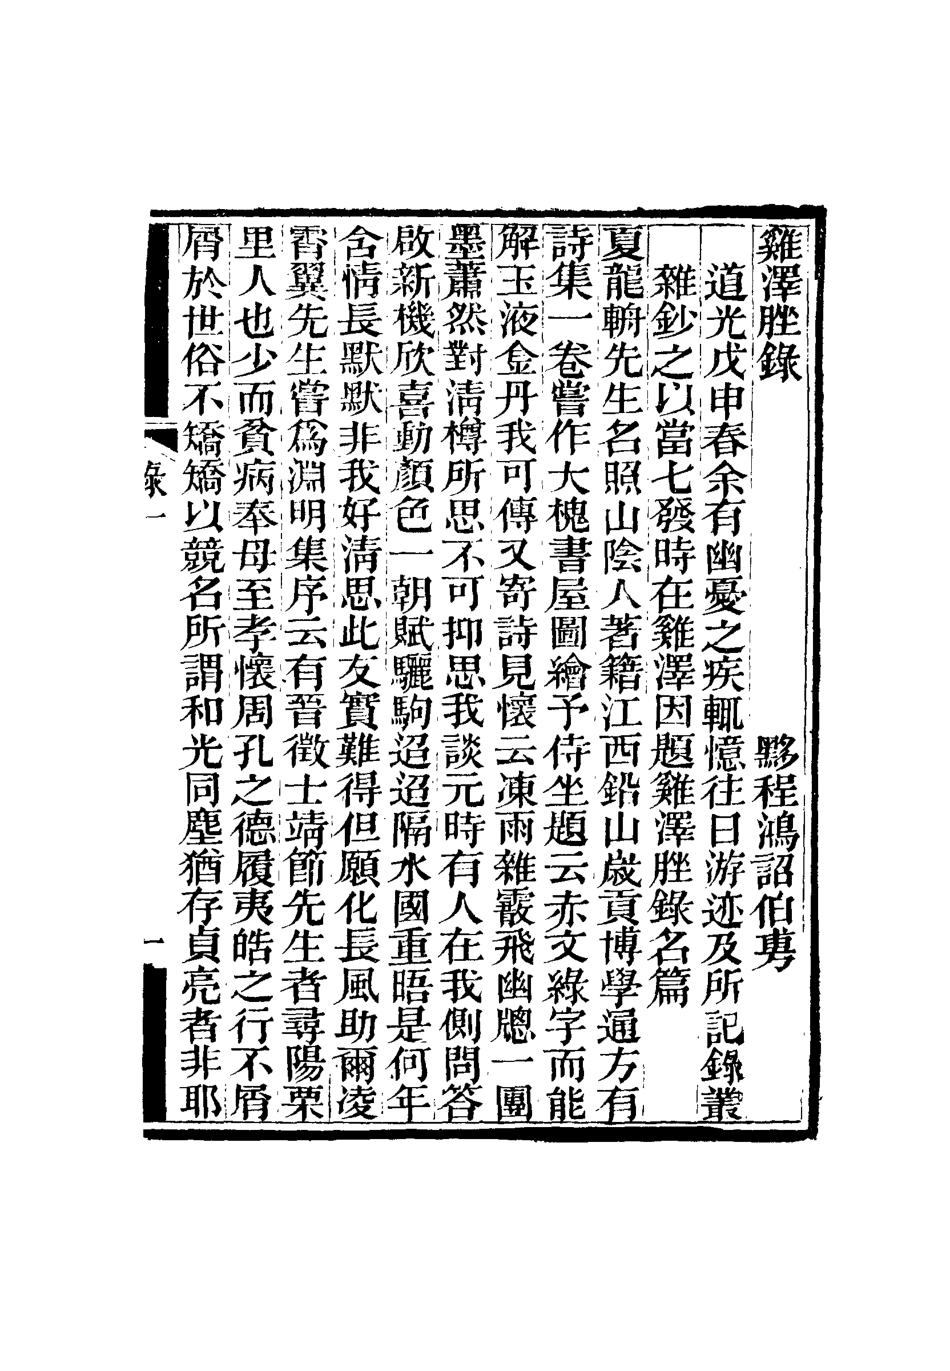 雞澤脞錄
黟程鴻詔伯旉
道光戊申春余有幽憂之疾輒憶往日游迹及所記錄叢
雜鈔之以當七發時在雞澤因題雞澤脞錄名篇
夏龍輈先生名照山陰人著籍江西鉛山歲貢博學通方有
詩集一卷嘗作大槐書屋圖繪予侍坐題云赤文綠字而能
解玉液金丹我可傳又寄詩見懷云凍雨雜霰飛幽牕一團
墨蕭然對清樽所思不可抑思我談元時有人在我側問答
啟新機欣喜動顏色一朝賦驪駒迢迢隔水國重晤是何年
含情長默默非我好清思此友實難得但願化長風助爾凌
霄翼先生嘗爲淵明集序云有晉徵士靖節先生者尋陽栗
里人也少而貧病奉母至孝懷周孔之德履夷皓之行不屑
屑於世俗不矯矯以競名所謂和光同塵猶存貞亮者非耶
錄一
一